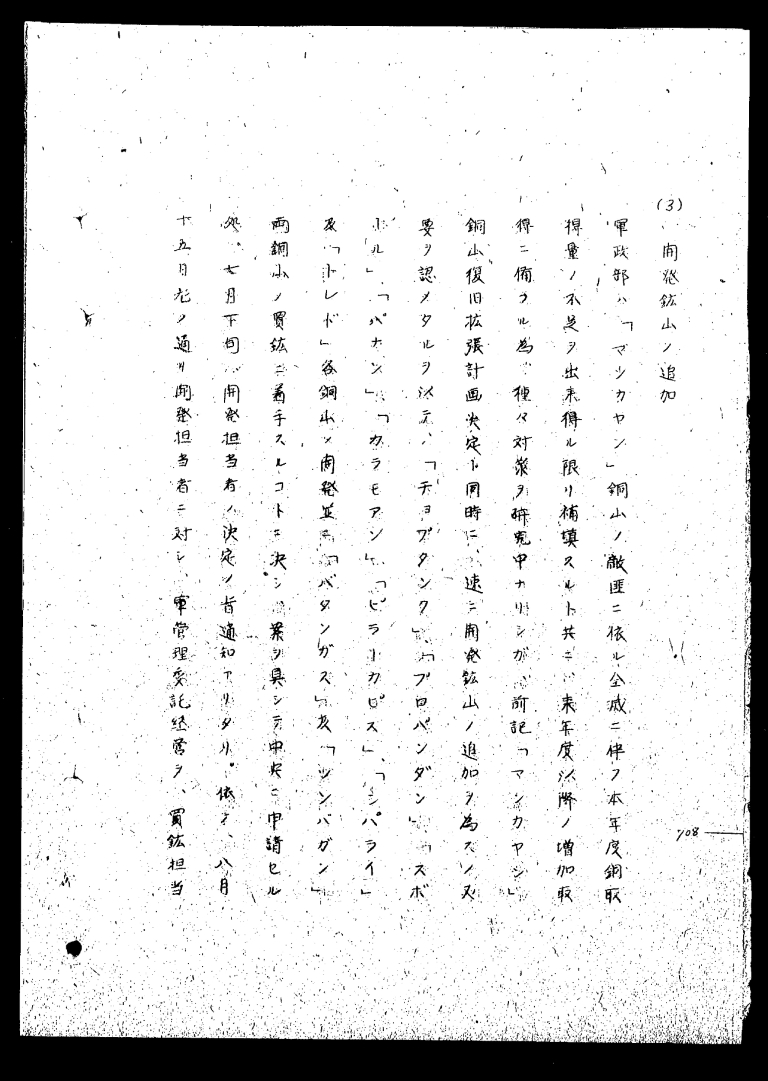 (3) 開発鉱山ノ追加
軍政部ハ「マンカヤン」銅山ノ敵匪ニ依ル全滅ニ伴フ本年度銅取
得量ノ不足ヲ出来得ル限リ補填スルト共ニ、来年度以降ノ増加取
得ニ備フル為、種々対策ヲ研究中ナリシガ、前記「マンカヤン」
銅山復旧拡張計画決定ト同時ニ、速ニ開発鉱山ノ追加ヲ為スノ必
要ヲ認メタルヲ以テ、「チョプタンク」、「プロパンダン」、「スボ
ホル」、「パナン」、「カラモアン」、「ピラカピス」、「シパライ」
及「トレド」各銅山ノ開発並ニ「バタンガス」及「ツンバガン」
両銅山ノ買鉱ニ着手スルコトニ決シ、案ヲ具シテ中央ニ申請セル
処、七月下旬、開発担当者ノ決定ノ旨通知アリタリ。依テ、八月
十五日左ノ通リ開発担当者ニ対シ、軍管理委託経営ヲ、買鉱担当
708